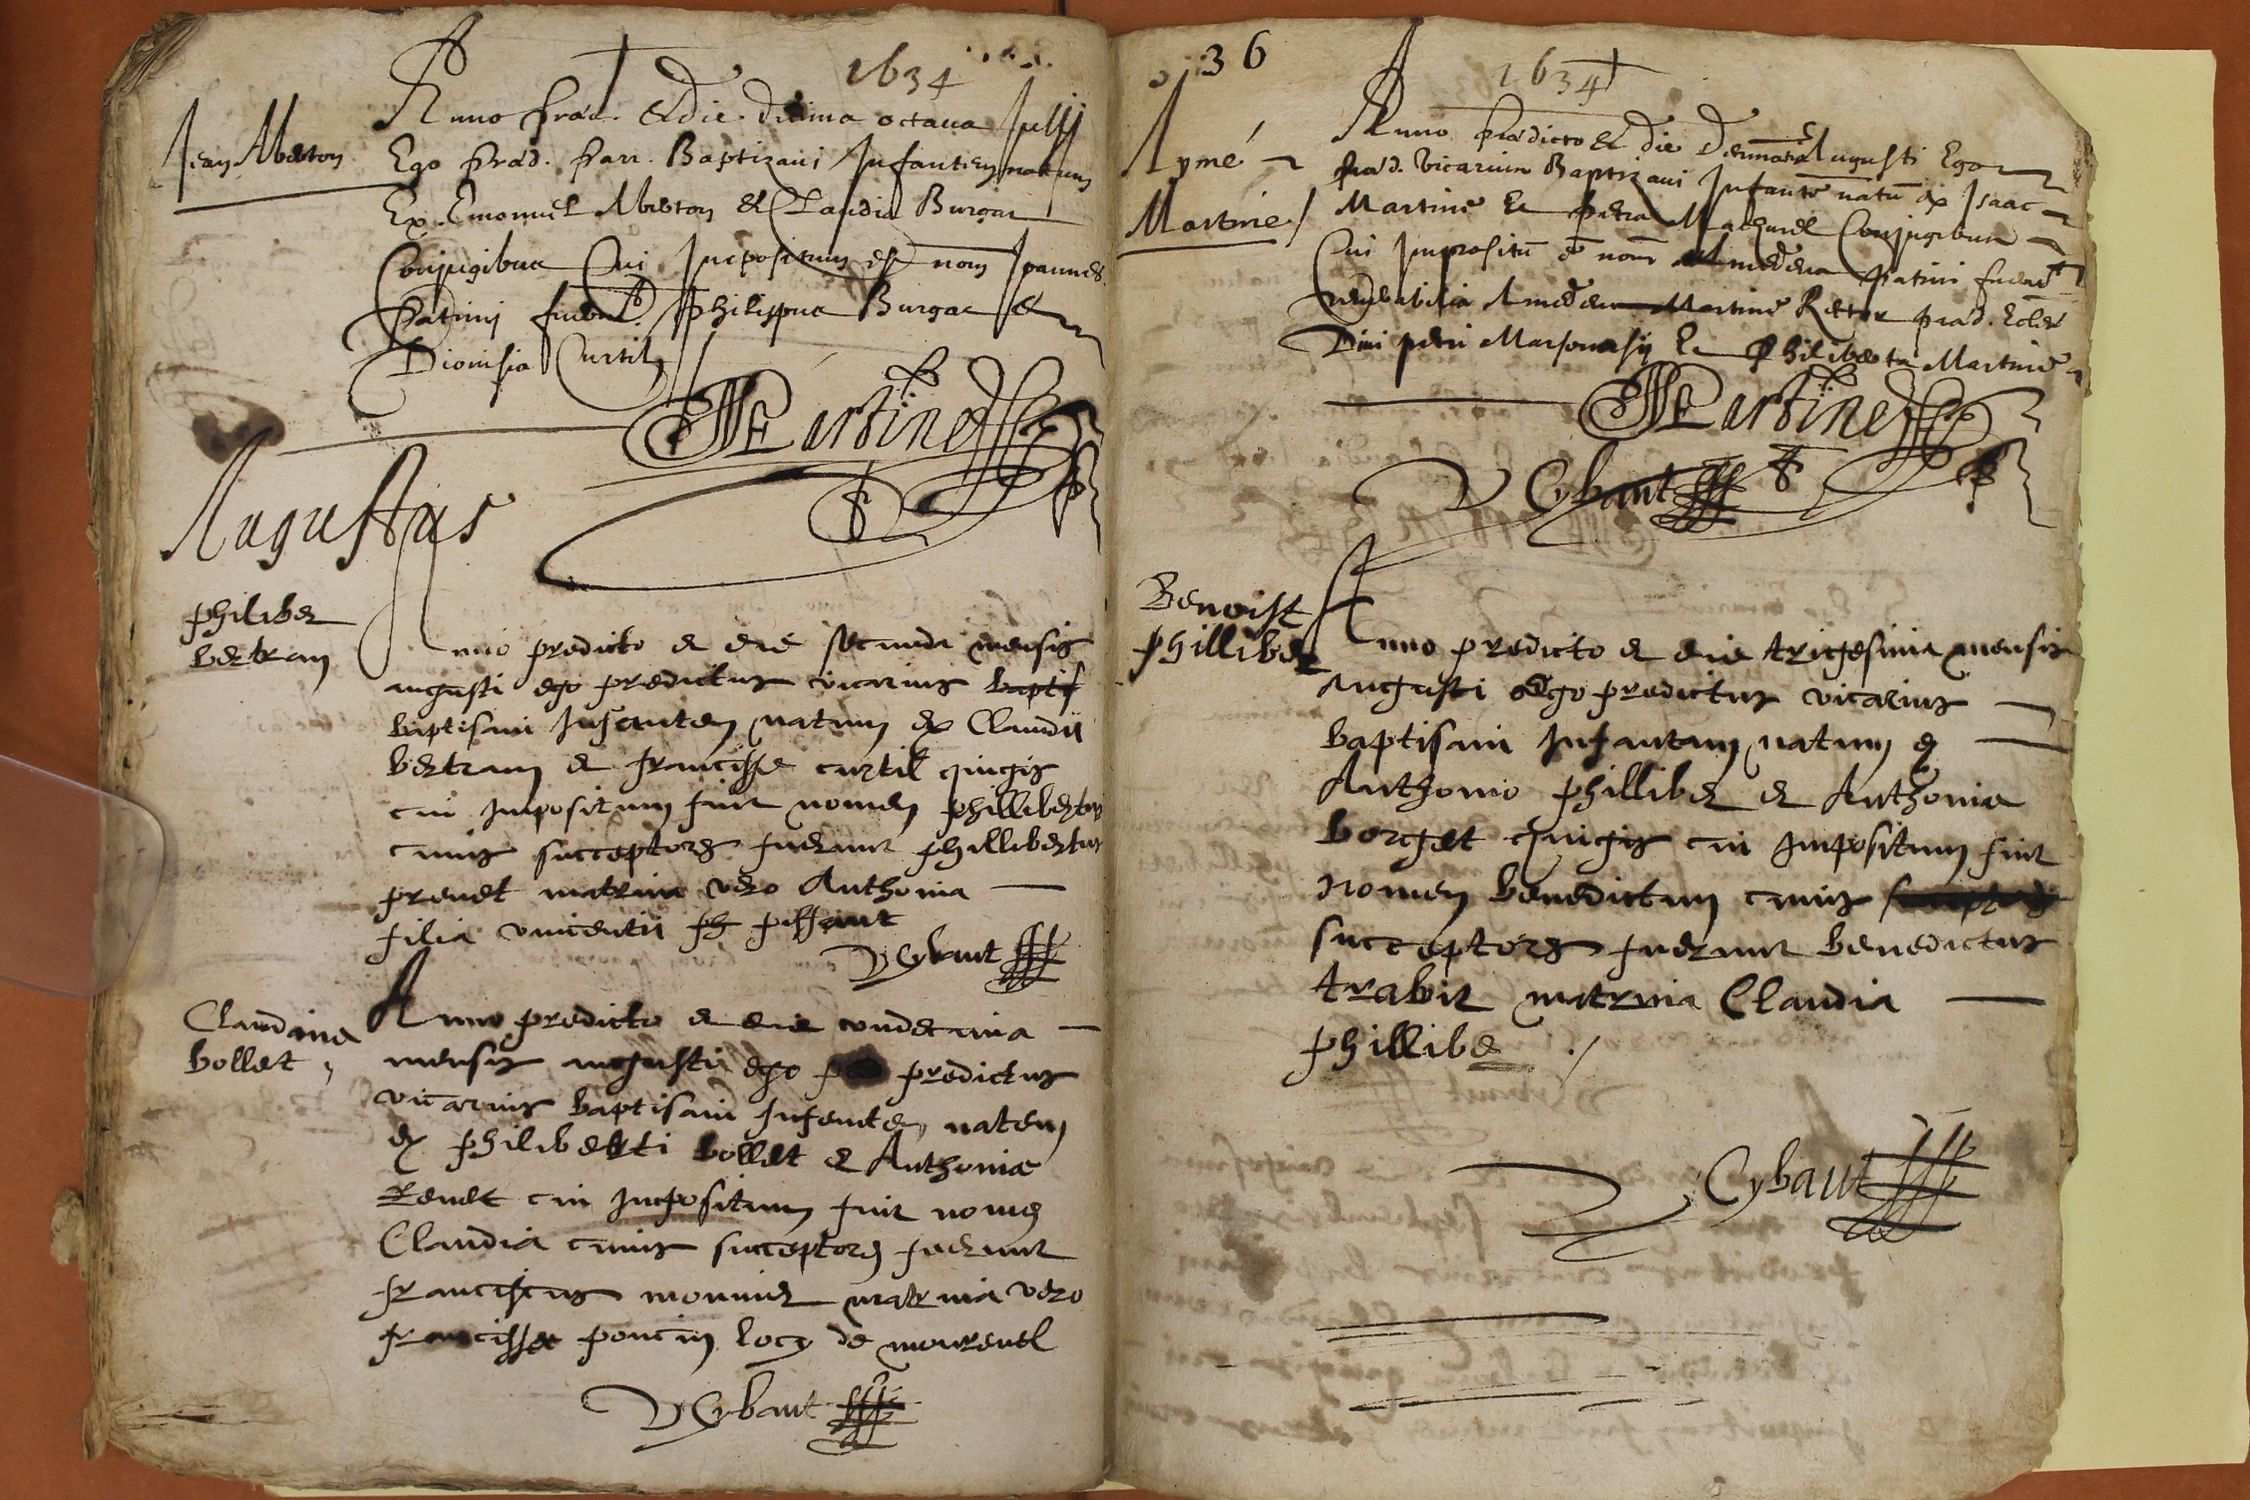 1634
Jean Mberton
Anno præd. Et die decima octava Jullÿ
Ego Præd. Parr. Baptizavi Infantem natum
Ex Emanuel Mberton Et Claudia Burgat
Conjugibus Cui Impositum est nom Joannes
Patrini fuerut. Philippus Burgat Et
Dionisia Curtil
Martine
Augustus
philiber
bertran
Anno predicto et die secunda mensis
augusti ego predictus vicarius baptis
baptisavi Infantem natum ex Claudii
bertram et francisse curtil qiugis
cui Impositum fuit nomen phillibertus
cuius susceptores fuerunt phillibertus
prevet matrina vero Anthonia
filia vincentii ph pissaint
D Cybaut
Claudina
bollet
Anno predicto et die undecima
mensis augusti ego predictus
vicarius baptisavi Infente, natem
ex philiberti bollet et Anthoniæ
Revet cui Impositum fuit nomen
Claudia cuius susceptores fuerunt
franciscus monnier matrina vero
francisse poncin locy de mourentl
D Cybaut
36
1634
Aymé
Martine
Anno prædicto Et die Augusti Ego
præd. vicarium Baptizavi Infantē natū ex Isaac
Martine Et Petra Mathurel Conjugibus
Cui Impositū ē nom Amedeus Patrini fuerūt
venerabilis Amedeus Martine Rector præd. Ecles
Dini petri Marsonasÿ Et Philiberta Martine
Martine
D Cybaut
Benoist
phillibert
Anno predicto et die trigesima mensis
Augusti ego predictus vicarius
baptisavi Infantam natum ex
Anthonio phillibert et Anthonia
borget qiugis cui Impositum fuit
nomen benedictum cuius
susceptores fuerunt benedictus
trabit matrina Claudia
phillibe
D Cybaut